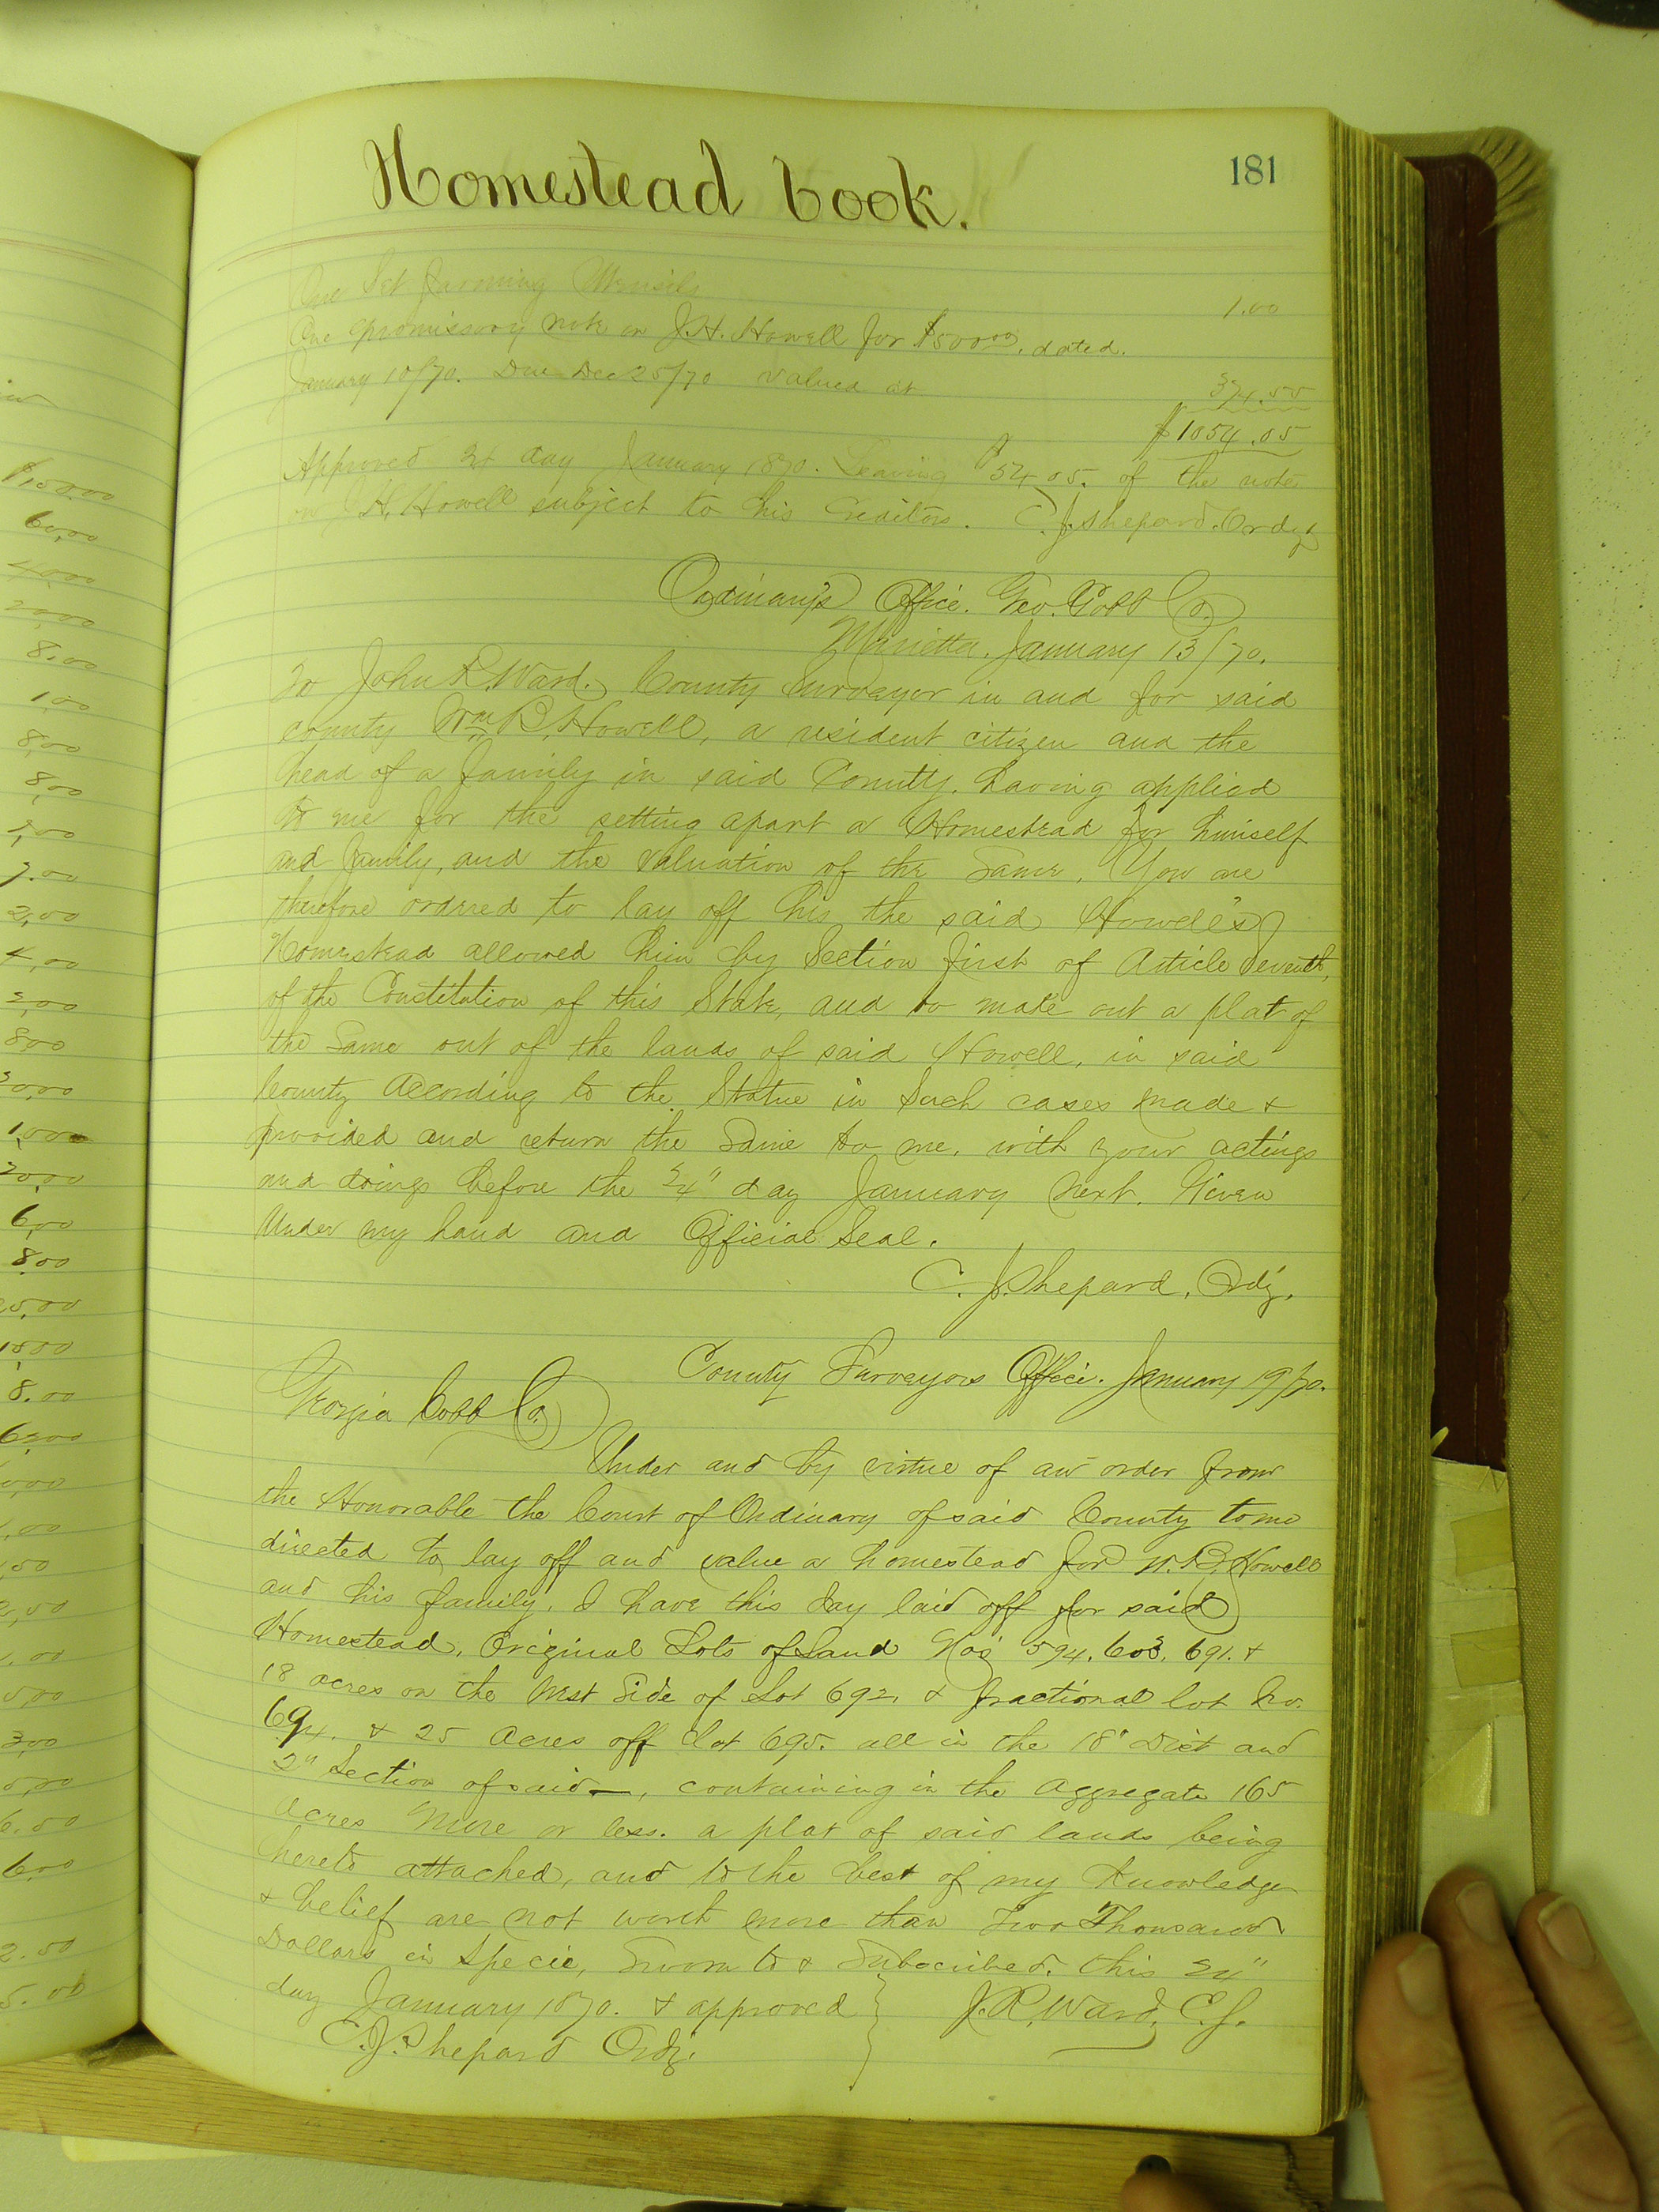 Homestead book.
181
One Set Farming Utensils 1.00
One promissory note on J.H. Howell for $500.00, dated.
January 10/70. Due Dec 25/70 valued at 374.55
$1054.05
Approved 24 day January 1870. Leaving $54.05. of the note
on J.H. Howell subject to his Creditors. C.J. Shepard. Ordy
Ordinary's Office. Geo. Cobb Co.
Marietta. January 13/70.
To John R. Ward. County Surveyor in and for said
county Wm. B. Howell, a resident citizen and the
head of a family in said County. having applied
to me for the setting apart a Homestead for himself
and family, and the valuation of the Same. You are
therefore ordered to lay off his, the said Howell's
Homestead allowed him by Section first of Article Seventh,
of the Constitution of this State, and to make out a plat of
the Same out of the lands of said Howell, in said
County According to the Statue in Such cases made &
provided and return the Same to me, with your actings
and doings before the 24" day January next. Given
Under my hand and Official Seal.
C. J. Shepard, Ordy.
County Surveyors Office. January 19/70.
Georgia Cobb Co.
Under and by virtue of an order from
the Honorable the Court of Ordinary of said County to me
directed to lay off and value a homestead for W.B. Howell
and his family. I have this day laid off for said
Homestead, Original Lots of Land Nos 594. 603. 691. &
18 acres on the West Side of Lot 692, & fractional lot No.
694. & 25 Acres off lot 695. all in the 18" Dist and
2" Section of said —, containing in the aggregate 165
acres More or less. a plat of said lands being
hereto attached, and to the best of my Knowledge
& belief are not worth more than Two Thousand
Dollars in Specie, Sworn to & Subscribed. this 24"
day January 1870. & approved } J.R. Ward, C.S.
C.J. Shepard Ordy.
$150.00
60.00
40.00
20.00
8.00
1.00
8.00
8.00
7.00
2.00
4.00
8.00
1.00
20.00
6.00
8.00
15.00
8.00
6.50
6.00
2.50
5.00